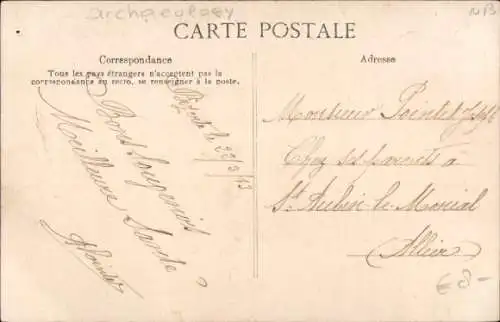 archaeology
NB
CARTE POSTALE
Correspondance
Tous les pays étrangers n'acceptent pas la
correspondance au recto, se renseigner à la poste.
Adresse
le 23/3/13
Bons Souvenirs
Meilleure Santé
Monsieur Pointet
Chez ses parents à
St Aubin le Monial
(Allier)
€8-